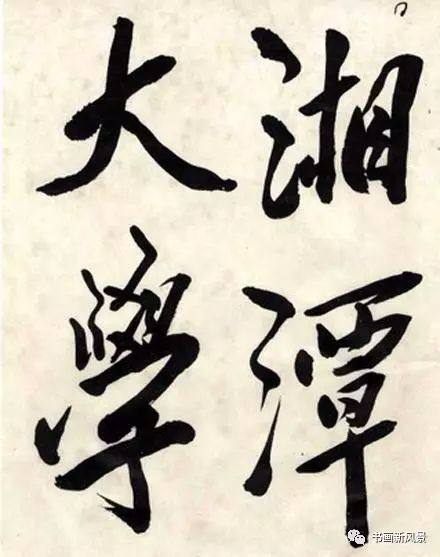 湘潭
大學
书画新风景